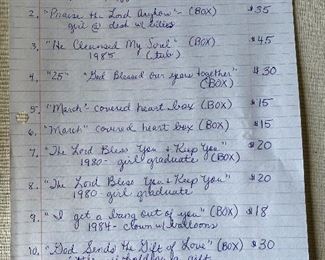 2. "Praise the Lord Anyhow" - (BOX) $35
girl @ desk w/ bills
3. "He Cleansed My Soul" (BOX) $45
1985 (tub)
4. "25" "God Blessed Our years together" $30
(BOX)
5. "March" covered heart box (BOX) $15
6. "March" covered heart box (BOX) $15
7. "The Lord Bless You & Keep You" $20
1980 - girl graduate (BOX)
8. "The Lord Bless You & Keep You" $20
1980 - girl graduate (BOX)
9. "I get a bang out of you" (BOX) $18
1984 - clown w/ balloons
10. "God Sends the Gift of Love" (BOX) $30
holding a gift